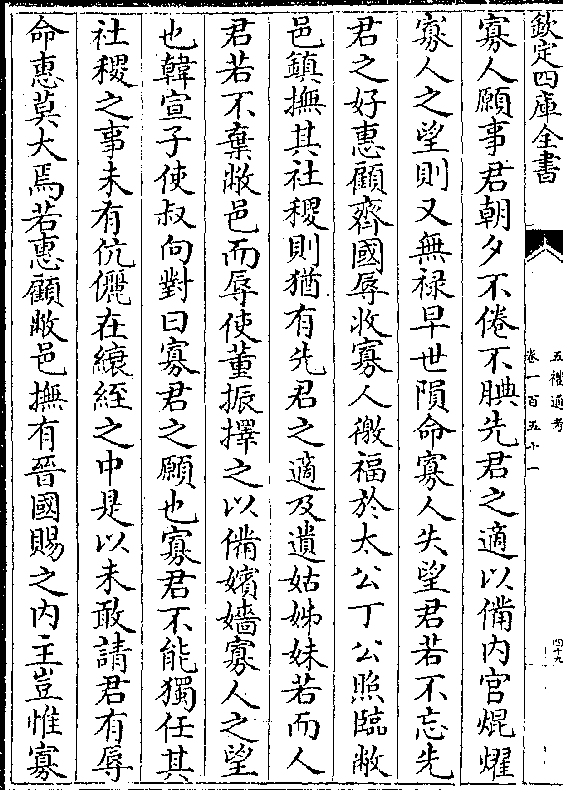 欽定四庫全書
五禮通考
卷一百五十一
四十九
寡人願事君朝夕不倦不腆先君之適以備内官焜燿
寡人之望則又無禄早世隕命寡人失望君若不忘先
君之好惠顧齊國辱收寡人徼福於太公丁公照臨敝
邑鎮撫其社稷則猶有先君之適及遺姑姊妹若而人
君若不棄敝邑而辱使董振擇之以備嬪嬙寡人之望
也韓宣子使叔向對曰寡君之願也寡君不能獨任其
社稷之事未有伉儷在縗絰之中是以未敢請君有辱
命惠莫大焉若惠顧敝邑撫有晉國賜之内主豈惟寡